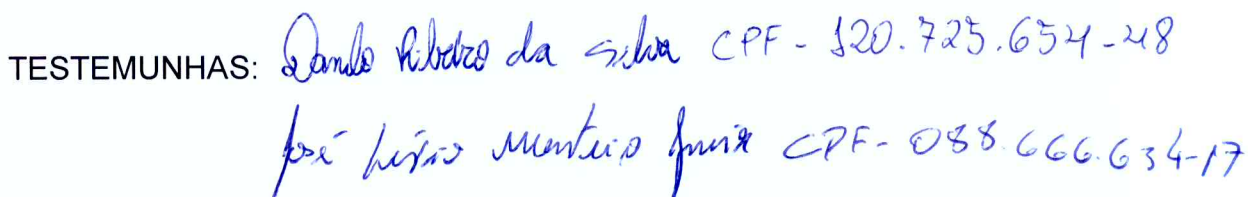 TESTEMUNHAS: Danilo Ribeiro da Silva CPF - 120.725.654-48
José Monteiro Junior CPF- 088.666.634-17